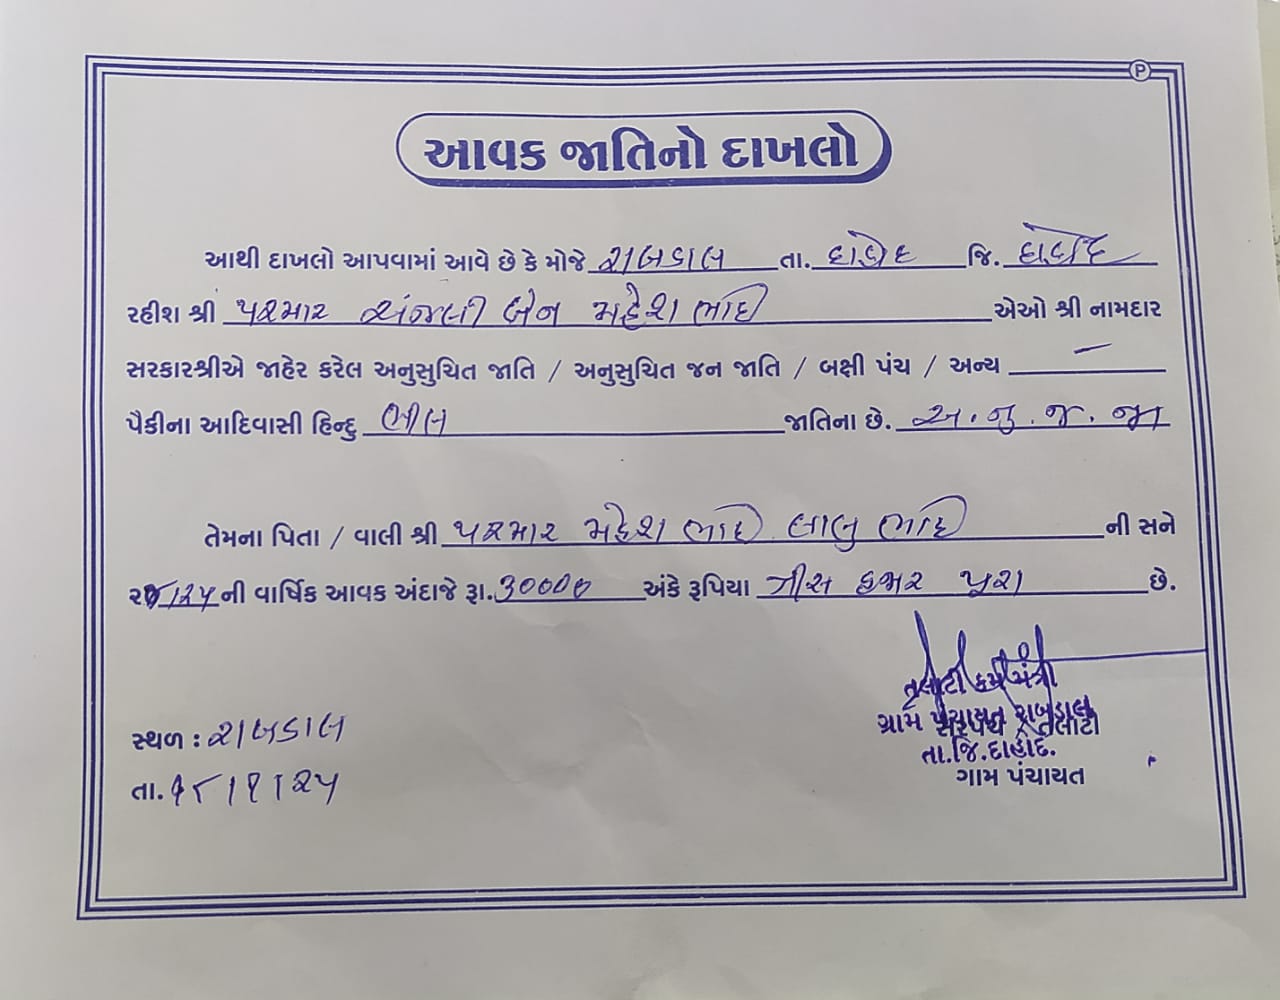 P
આવક જાતિનો દાખલો
આથી દાખલો આપવામાં આવે છે કે મોજે રાબડાલ તા. દાહોદ જિ. દાહોદ
રહીશ શ્રી પરમાર અંજલી બેન મહેશ ભાઈ એઓ શ્રી નામદાર
સરકારશ્રીએ જાહેર કરેલ અનુસુચિત જાતિ / અનુસુચિત જન જાતિ / બક્ષી પંચ / અન્ય –
પૈકીના આદિવાસી હિન્દુ ભીલ જાતિના છે. અ.નુ.જ.જા
તેમના પિતા / વાલી શ્રી પરમાર મહેશ ભાઈ લાલુ ભાઈ ની સને
ની વાર્ષિક આવક અંદાજે રૂા. 30000 અંકે રૂપિયા ત્રીસ હજાર પુરા છે.
તલાટી કમ મંત્રી
ગ્રામ પંચાયત રાબડાલ
સરપંચ / તલાટી
તા.જિ.દાહોદ.
ગામ પંચાયત
સ્થળ : રાબડાલ
તા. ૧૮।૧।૨૫